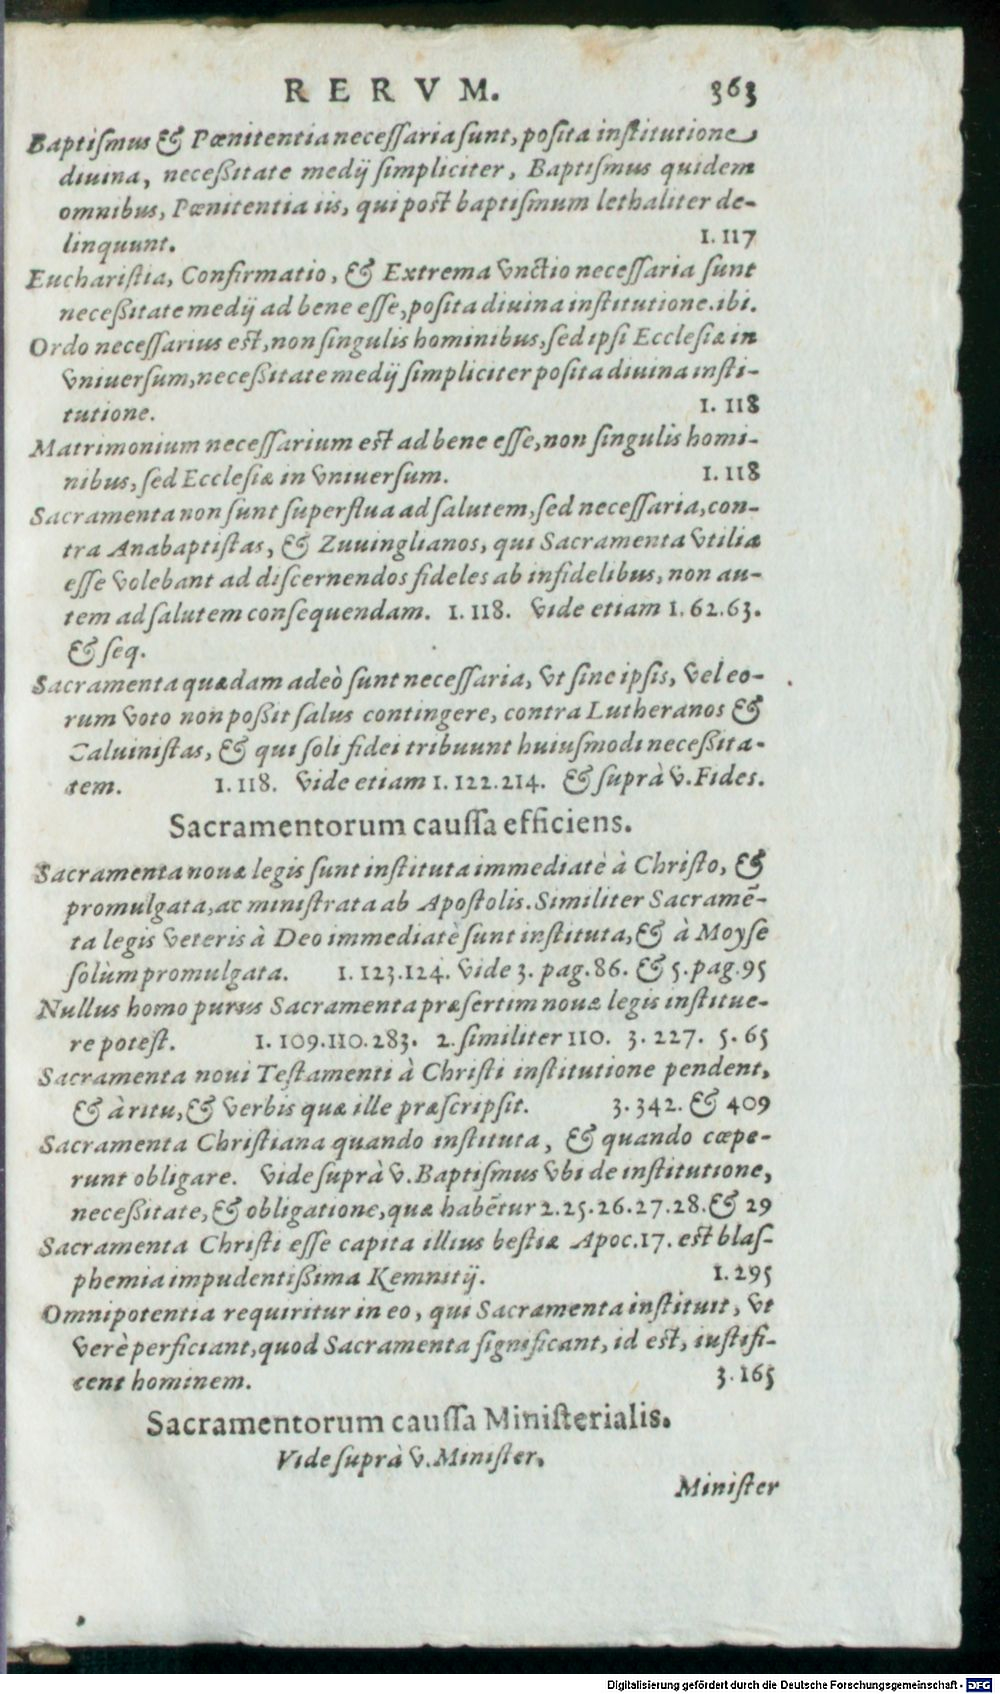 RERVM. 363
Baptiſmus & Pœnitentia neceſſaria ſunt, poſita inſtitutione
diuina, neceßitate medij ſimpliciter, Baptiſmus quidem
omnibus, Pœnitentia iis, qui poſt baptiſmum lethaliter de-
linquunt. 1. 117
Euchariſtia, Confirmatio, & Extrema vnctio neceſſaria ſunt
neceßitate medij ad bene eſſe, poſita diuina inſtitutione. ibi.
Ordo neceſſarius eſt, non ſingulis hominibus, ſed ipſi Eccleſiæ in
vniuerſum, neceßitate medij ſimpliciter poſita diuina inſti-
tutione. 1. 118
Matrimonium neceſſarium eſt ad bene eſſe, non ſingulis homi-
nibus, ſed Eccleſiæ in vniuerſum. 1. 118
Sacramenta non ſunt ſuperflua ad ſalutem, ſed neceſſaria, con-
tra Anabaptiſtas, & Zuuinglianos, qui Sacramenta vtilia
eſſe volebant ad diſcernendos fideles ab infidelibus, non au-
tem ad ſalutem conſequendam. 1. 118. vide etiam 1. 62. 63.
& ſeq.
Sacramenta quædam adeò ſunt neceſſaria, vt ſine ipſis, vel eo-
rum voto non poßit ſalus contingere, contra Lutheranos &
Caluiniſtas, & qui ſoli fidei tribuunt huiuſmodi neceßita-
tem. 1. 118. vide etiam 1. 122. 214. & ſuprà v. Fides.
Sacramentorum cauſſa efficiens.
Sacramenta nouæ legis ſunt inſtituta immediatè à Chriſto, &
promulgata, ac miniſtrata ab Apoſtolis. Similiter Sacramē-
ta legis veteris à Deo immediatè ſunt inſtituta, & à Moyſe
ſolùm promulgata. 1. 123. 124. vide 3. pag. 86. & 5. pag. 95
Nullus homo purus Sacramenta præſertim nouæ legis inſtitue-
re poteſt. 1. 109. 110. 283. 2. ſimiliter 110. 3. 227. 5. 65
Sacramenta noui Teſtamenti à Chriſti inſtitutione pendent,
& à ritu, & verbis quæ ille præſcripſit. 3. 342. & 409
Sacramenta Chriſtiana quando inſtituta, & quando cœpe-
runt obligare. vide ſuprà v. Baptiſmus vbi de inſtitutione,
neceßitate, & obligatione, quæ habētur 2. 25. 26. 27. 28. & 29
Sacramenta Chriſti eſſe capita illius beſtiæ Apoc. 17. eſt blaſ-
phemia impudentißima Kemnitij. 1. 295
Omnipotentia requiritur in eo, qui Sacramenta inſtituit, vt
verè perficiant, quod Sacramenta ſignificant, id eſt, iuſtifi-
cent hominem. 3. 165
Sacramentorum cauſſa Miniſterialis.
Vide ſuprà v. Miniſter.
Miniſter
Digitalisierung gefördert durch die Deutsche Forschungsgemeinschaft - DFG